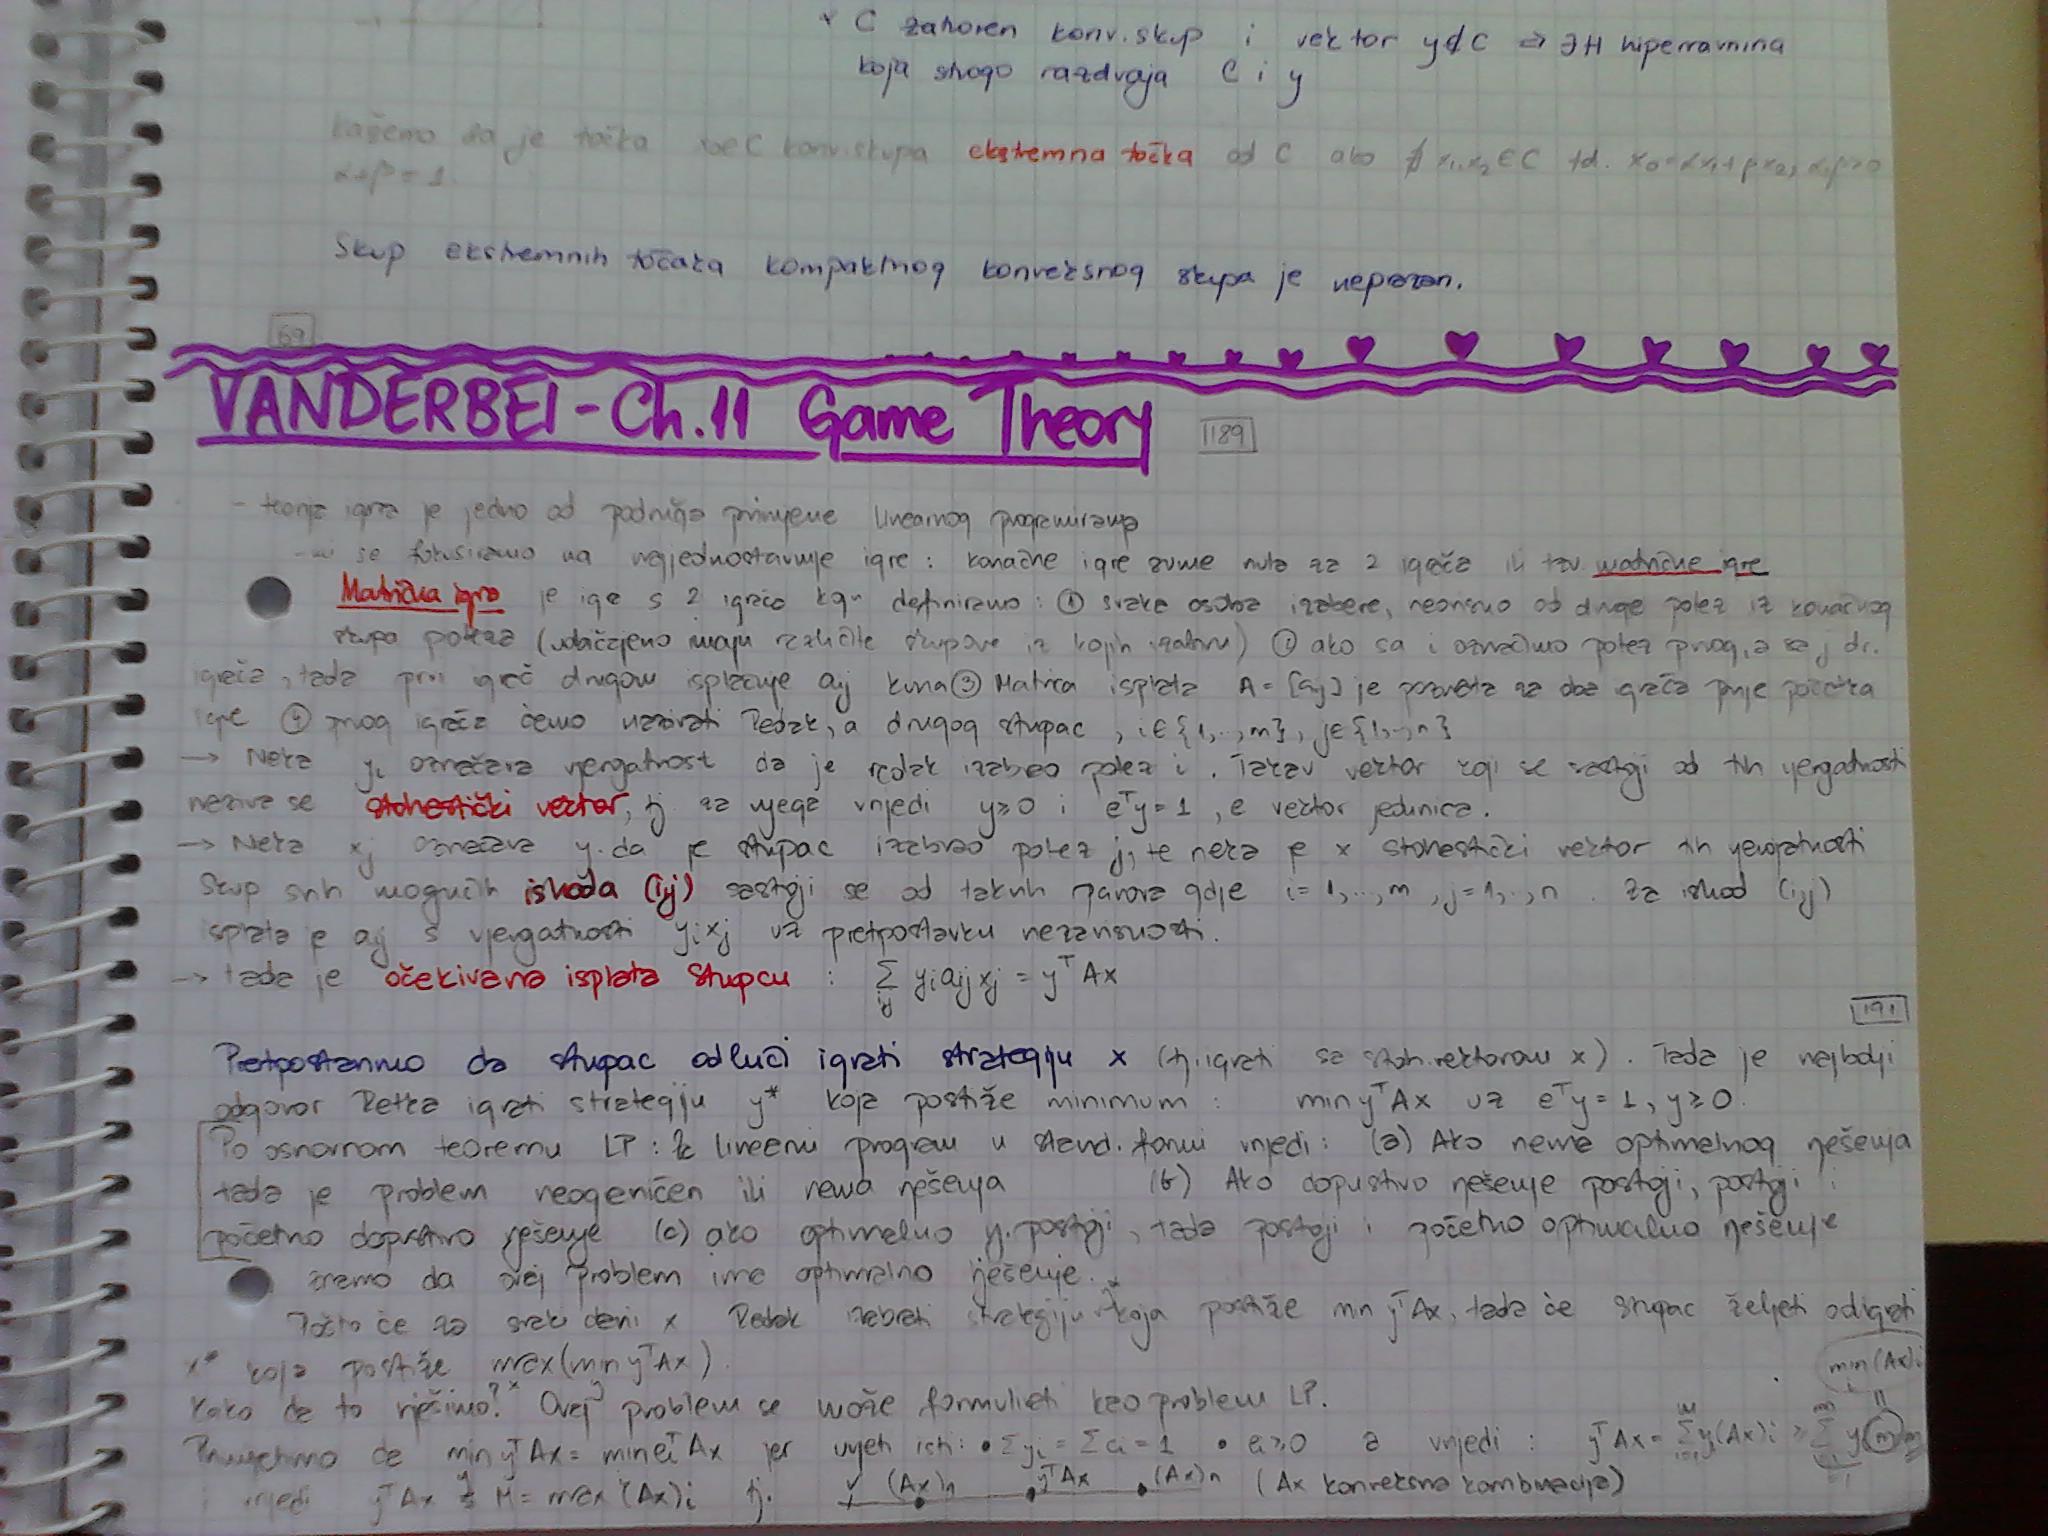 * C zatvoren konv. skup i vektor y∉C ⇒ ∃H hiperravnina
koja strogo razdvaja C i y
Kažemo da je točka x₀∈C konv. skupa ekstremna točka od C ako ∄ x₁,x₂∈C td. x₀=αx₁+βx₂, α,β>0
α+β=1.
Skup ekstremnih točaka kompaktnog konveksnog skupa je neprazan.
69
VANDERBEI - Ch.11 Game Theory 189
- teorija igra je jedno od područja primjene linearnog programiranja
- mi se fokusiramo na najjednostavnije igre: konačne igre sume nula za 2 igrača ili tzv. matrične igre
Matrična igra je igra s 2 igrača koju definiramo: ① svaka osoba izabere, neovisno od druge potez iz konačnog
skupa poteza (uobičajeno imaju različite skupove iz kojih izabiru) ② ako sa i označimo potez prvog, a sa j dr.
igrača, tada prvi igrač drugom isplaćuje aij kuna ③ Matrica isplata A = [aij] je poznata za oba igrača prije početka
igre ④ prvog igrača ćemo nazivati Redak, a drugog stupac, i∈{1,..,m}, j∈{1,..,n}
→ Neka yi označava vjerojatnost da je redak izabrao potez i. Takav vektor koji se sastoji od tih vjerojatnosti
naziva se stohastički vektor, tj. za njega vrijedi y≥0 i eᵀy=1, e vektor jedinica.
→ Neka xj označava vj. da je stupac izabrao potez j, te neka je x stohastički vektor tih vjerojatnosti
Skup svih mogućih ishoda (i,j) sastoji se od takvih parova gdje i=1,...,m, j=1,..,n. Za ishod (i,j)
isplata je aij s vjerojatnosti yixj uz pretpostavku nezavisnosti.
→ tada je očekivana isplata stupcu: Σij yi aij xj = yᵀAx
191
Pretpostavimo da stupac odluči igrati strategiju x (tj. igrati sa stoh. vektorom x). Tada je najbolji
odgovor Retka igrati strategiju y* koja postiže minimum: min yᵀAx uz eᵀy=1, y≥0.
Po osnovnom teoremu LP: Za linearni program u stand. formi vrijedi: (a) Ako nema optimalnog rješenja
tada je problem neograničen ili nema rješenja (b) Ako dopustivo rješenje postoji, postoji i
početno dopustivo rješenje (c) ako optimalno rj. postoji, tada postoji i početno optimalno rješenje
znamo da ovaj problem ima optimalno rješenje.
Pošto će za svaki dani x Redak izabrati strategiju y* koja postiže min yᵀAx, tada će stupac željeti odigrati
x* koja postiže max x (min y yᵀAx).
min i (Ax)i
Kako da to riješimo? Ovaj problem se može formulirati kao problem LP.
Primijetimo da min y yᵀAx = min eiᵀAx jer uvjeti isti: • Σyi = Σei = 1 • ei≥0 a vrijedi: yᵀAx = Σ yi(Ax)i ≥
i vrijedi yᵀAx ≤ M = max (Ax)i tj. (Ax)1 yᵀAx (Ax)n (Ax konveksna kombinacija)